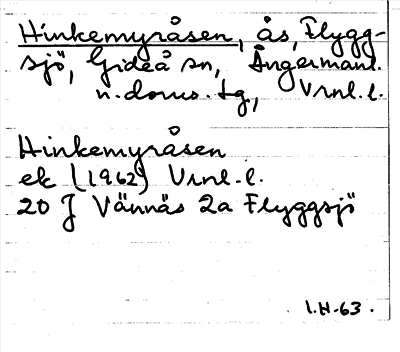 Hinkemyråsen, ås, Flygg-
sjö, Gideå sn, Ångermanl.
n. doms. tg, Vrnl. l.
Hinkemyråsen
ek (1962) Vrnl. l.
20 J Vännäs 2a Flyggsjö
I.H-63.